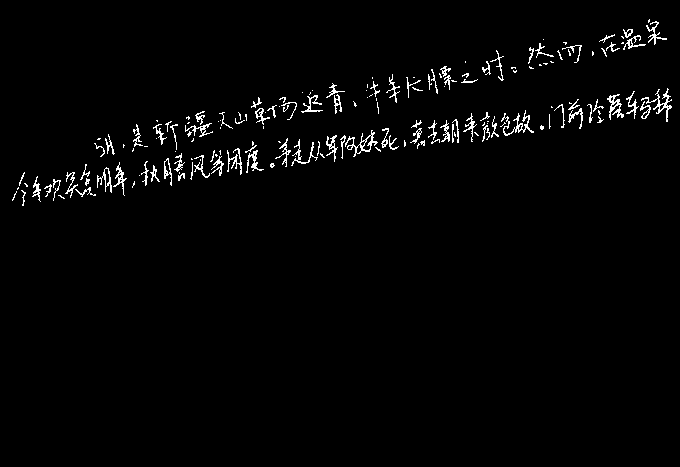 5月,是新疆天山草场返青、牛羊长膘之时。然而,在温泉
今年欢笑复明年,秋月春风等闲度。弟走从军阿姨死,暮去朝来颜色故。门前冷落车马稀